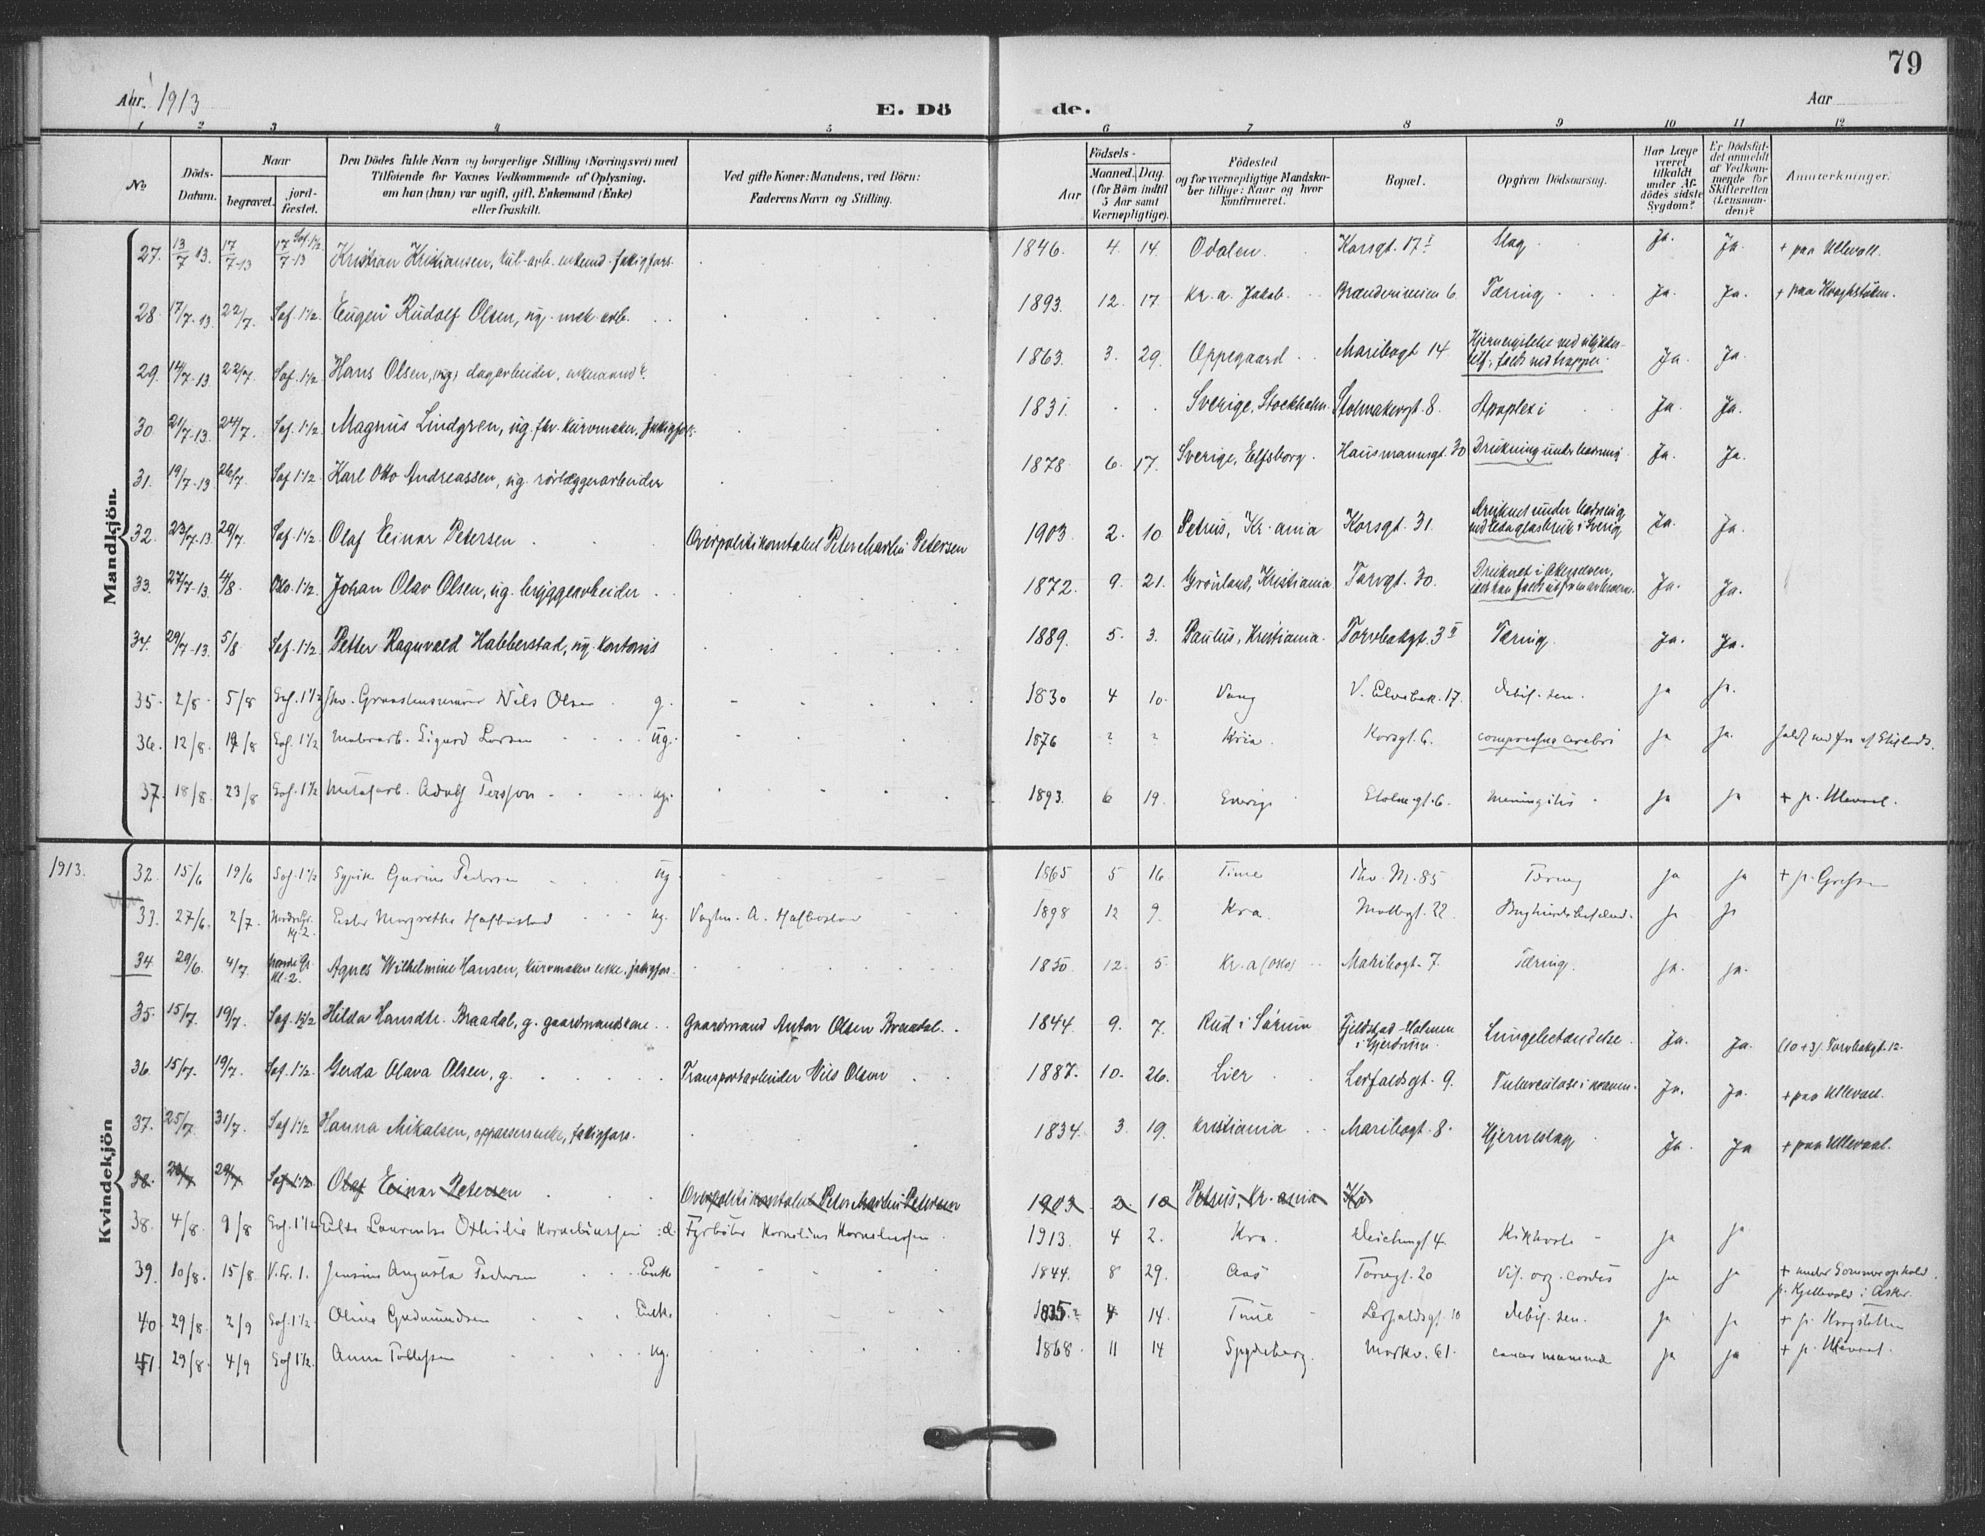 79
Aar. 1913
E. Dö
de.
Aar
1 2 3 4 5 6 7 8 9 10 11 12
No
Döds-Datum.
Naar
begravet.
jord-fæstet.
Den Dödes fulde Navn og borgerlige Stilling (Næringsvei) med
Tilföiende for Voxnes Vedkommende af Oplysning,
om han (hun) var ugift, gift, Enkemand (Enke)
eller fraskilt.
Ved gifte Koner: Mandens, ved Börn:
Faderens Navn og Stilling.
Födsels-
Aar
Maaned. Dag.
(for Börn indtil
5 Aar samt
Værnepligtige).
Födested
og for værnepligtige Mandska-
ber tillige: Naar og hvor
konfirmeret.
Bopæl.
Opgiven Dödsaarsag.
Har Læge
været
tilkaldt
under Af-
dödes sidste
Sygdom?
Er Dödsfal-
det anmeldt
af Vedkom-
mende for
Skifteretten
(Lensman-
den)?
Anmærkninger.
Mandkjön.
27. 13/7 13. 17/7-13 17/7-13 Sof. 1 1/2 Kristian Kristiansen, enkemd. fattigfors. 1846. 4 14. Odalen. Korsgt. 17 I Slag Ja. Ja. + paa Ullevoll.
28. 17/7-13. 22/7. Sof. 1 1/2. Eugen Rudolf Olsen, ug. mek. arb. 1893. 12. 17. Kr.a. Jakob. Brænderiveien 6. Tæring Ja. Ja. + paa Kroghstøtten.
29. 14/7-13 22/7. Sof. 1 1/2 Hans Olsen, (ug) dagarbeider, enkemand. 1863. 3. 29. Oppegaard Maribogt 14. Hjernerystelse ved ulykkes-
tilf., faldt ned trappe. Ja. Ja.
30. 21/7-13. 24/7. Sof. 1 1/2. Magnus Lindgren, ug. fhv. kurvmaker, fattigfors. 1831. Sverige, Stockholm. Stolmakergt. 8. Apoplexi Ja. Ja.
31. 19/7-13 26/7. Sof. 1 1/2 Karl Otto Andreassen, ug. rørlæggerarbeider 1878. 6. 17. Sverige, Elfsborg. Hausmannsgt. 30 Drukning under badning. Ja. Ja.
32. 23/7-13 29/7. Sof. 1 1/2. Olaf Einar Petersen Overpolitikonstabel Peter Martin Petersen 1903. 2. 10. Petrus, Kr.ania Korsgt. 31. Druknet under badning
ved Eda glasbruk i Sverig Ja. Ja.
33. 27/7-13. 4/8. Oslo. 1 1/2. Johan Olav Olsen, ug. bryggearbeider 1872. 9. 21. Grønland, Kristiania Torvgt. 30. Druknet i Akerselven,
Ja. Ja.
34. 29/7-13. 5/8 Sof. 1 1/2. Petter Ragnvald Habberstad, ug. kontorist 1889. 5. 3. Paulus, Kristiania. Torvbakgt. 3 II Tæring. Ja. Ja.
35. 2/8. 5/8 Sof. 1 1/2 fhv. Nils Olsen g. 1830 4 10. Vang V. Elvebak. 17. debil. sen. ja ja.
36. 12/8. 19/8 Sof. 1 1/2 Malerarb. Sigurd Larsen ug. 1876 ? ? Kria. Korsgt. 6. compressio cerebri ja ja.
37. 18/8. 23/8 Sof. 1 1/2 Metalarb. Adolf Persson ug. 1893. 6 19. Sverige Stolmgt. 6. Meningitis ja ja + p. Ullevaal.
Kvindekjön
1913. 32. 15/6 19/6 Sof. 1 1/2 Gurine Pedersen ug 1865 5 16 Time Thv. M. 85 Tæring ja ja + p. Grefsen
33. 27/6. 2/7. Nordre Gr. Kl. 2. Ester Margrethe Hafbostad ug. Vogtm. A. Hafbostad 1898 12 9. Kra. Møllegt. 22 ja ja
34 29/6. 4/7. Nordre Gr. Kl. 2. Agnes Wilhelmine Hansen, kurvmakers enke, fattigfors. 1850. 12. 5 Kr.a (Oslo) Maribogt. 7. Tæring. ja. ja.
35. 15/7. 19/7. Sof. 1 1/2 Hilda Hansdtr. Braadal, g. gaardmandskone Gaardmand Anton Olsen Braadal. 1844. 9. 7. Rud i Sørum Fjeldstad-Holmen
i Gjerdrum. Lungebetændelse. Ja. Ja. (10+3) Torvbakgt. 12
36. 15/7. 19/7. Sof. 1 1/2. Gerda Olava Olsen, g. Transportarbeider Nils Olsen 1887. 10. 26. Lier Lerfaldsgt. 9. Tuberculose Ja. Ja. + paa Ullevaal.
37. 25/7. 31/7. Sof 1 1/2 Hanna Mikalsen, oppassers enke, fattigfors. 1834. 3. 19. Kristiania Maribogt. 8. Hjerneslag Ja. Ja + paa Ullevaal.
38. 23/7 29/7 Sof. 1 1/2 Olaf Einar Petersen Overpolitikonstabel Peter Martin Petersen 1903. 2. 10 Petrus, Kr.ania Ko
38. 4/8. 9/8 Sof. 1 1/2 Laurentze Othilie Korneliussen d. Fyrbøter Kornelius Korneliussen. 1913. 4 2. Kra. Deichmgt 4. Kikhoste ja ja
39. 10/8. 15/8 V. Gr. 1. Jensine Augusta Pedersen Enke 1844. 8 29. Aas Torvgt. 20 Vit. org. cordis ja ja + under Sommerophold
p. Kjellevold i Asker.
40 29/8. 2/9 Sof. 1 1/2. Oline Gudmundsen Enke. 1835 ? 4 14. Time Lerfaldsgt. 10 debil. sen. ja ja + p. Krogstøtten
41. 29/8. 4/9 Sof 1 1/2. Anna Tollefsen ug. 1868. 11 14 Spydeberg. Markv. 61. cancer mammae ja ja + p. Ullevaal.